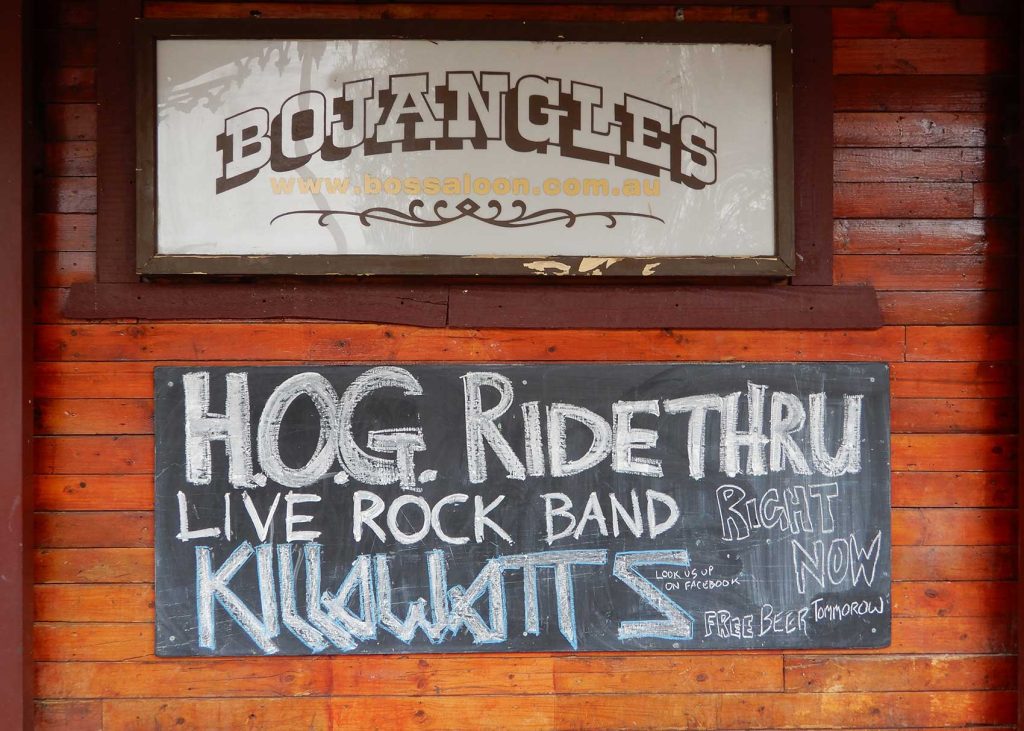 BOJANGLES
www.bossaloon.com.au
H.O.G. RIDE THRU
LIVE ROCK BAND
RIGHT
NOW
KILLAWATTS
LOOK US UP
ON FACEBOOK
FREE BEER TOMMOROW